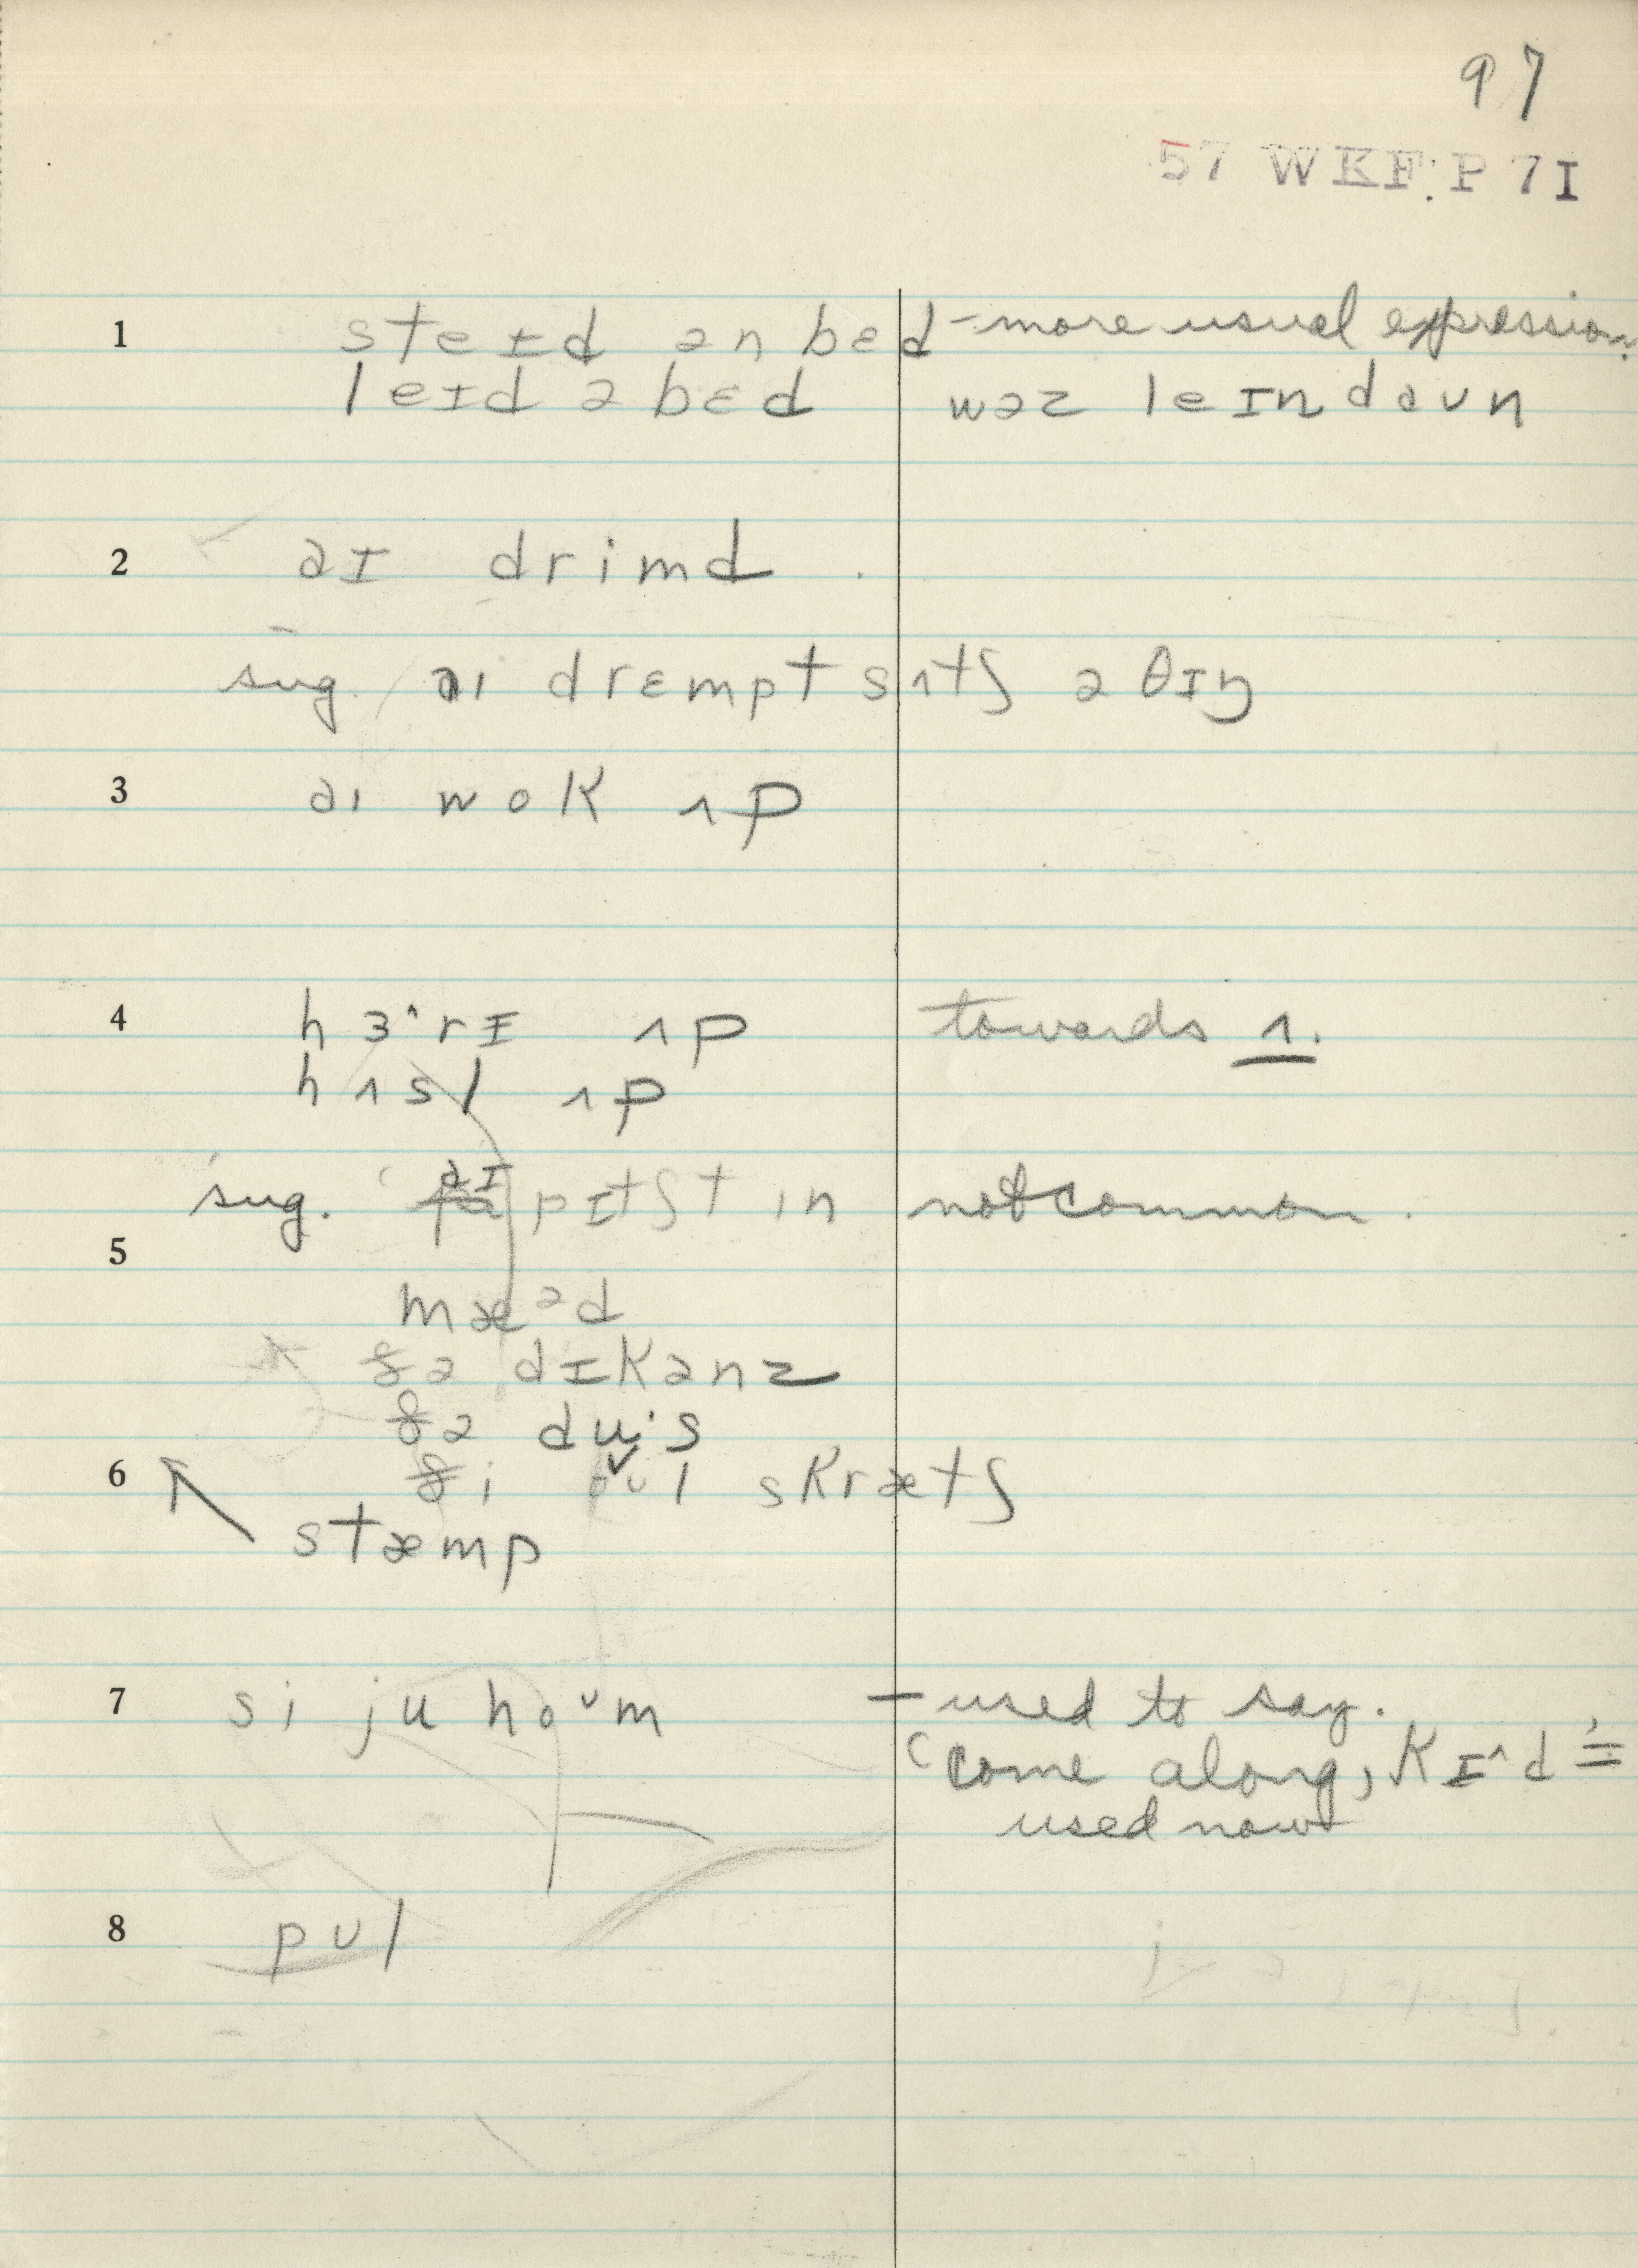 97
57 WKF: P 7I
1 steɪd ən bɛd – more usual expression.
leɪd ə bɛd wəz leɪn daʊn
2 aɪ drimd
sug. aɪ drɛmpt sʌtʃ ə θɪŋ
3 aɪ wok ʌp
4 hɜ^rɪ ʌp towards ʌ.
hʌsl ʌp
sug. aɪ pɪtʃt in not common.
5
mæᵊd
ðə dɪkənz
ðə du·s
6 ði oʊl skrætʃ
stæmp
7 si ju hoᵛm – used to say.
'come along, kɪ^d' =
used now
8 pʊl